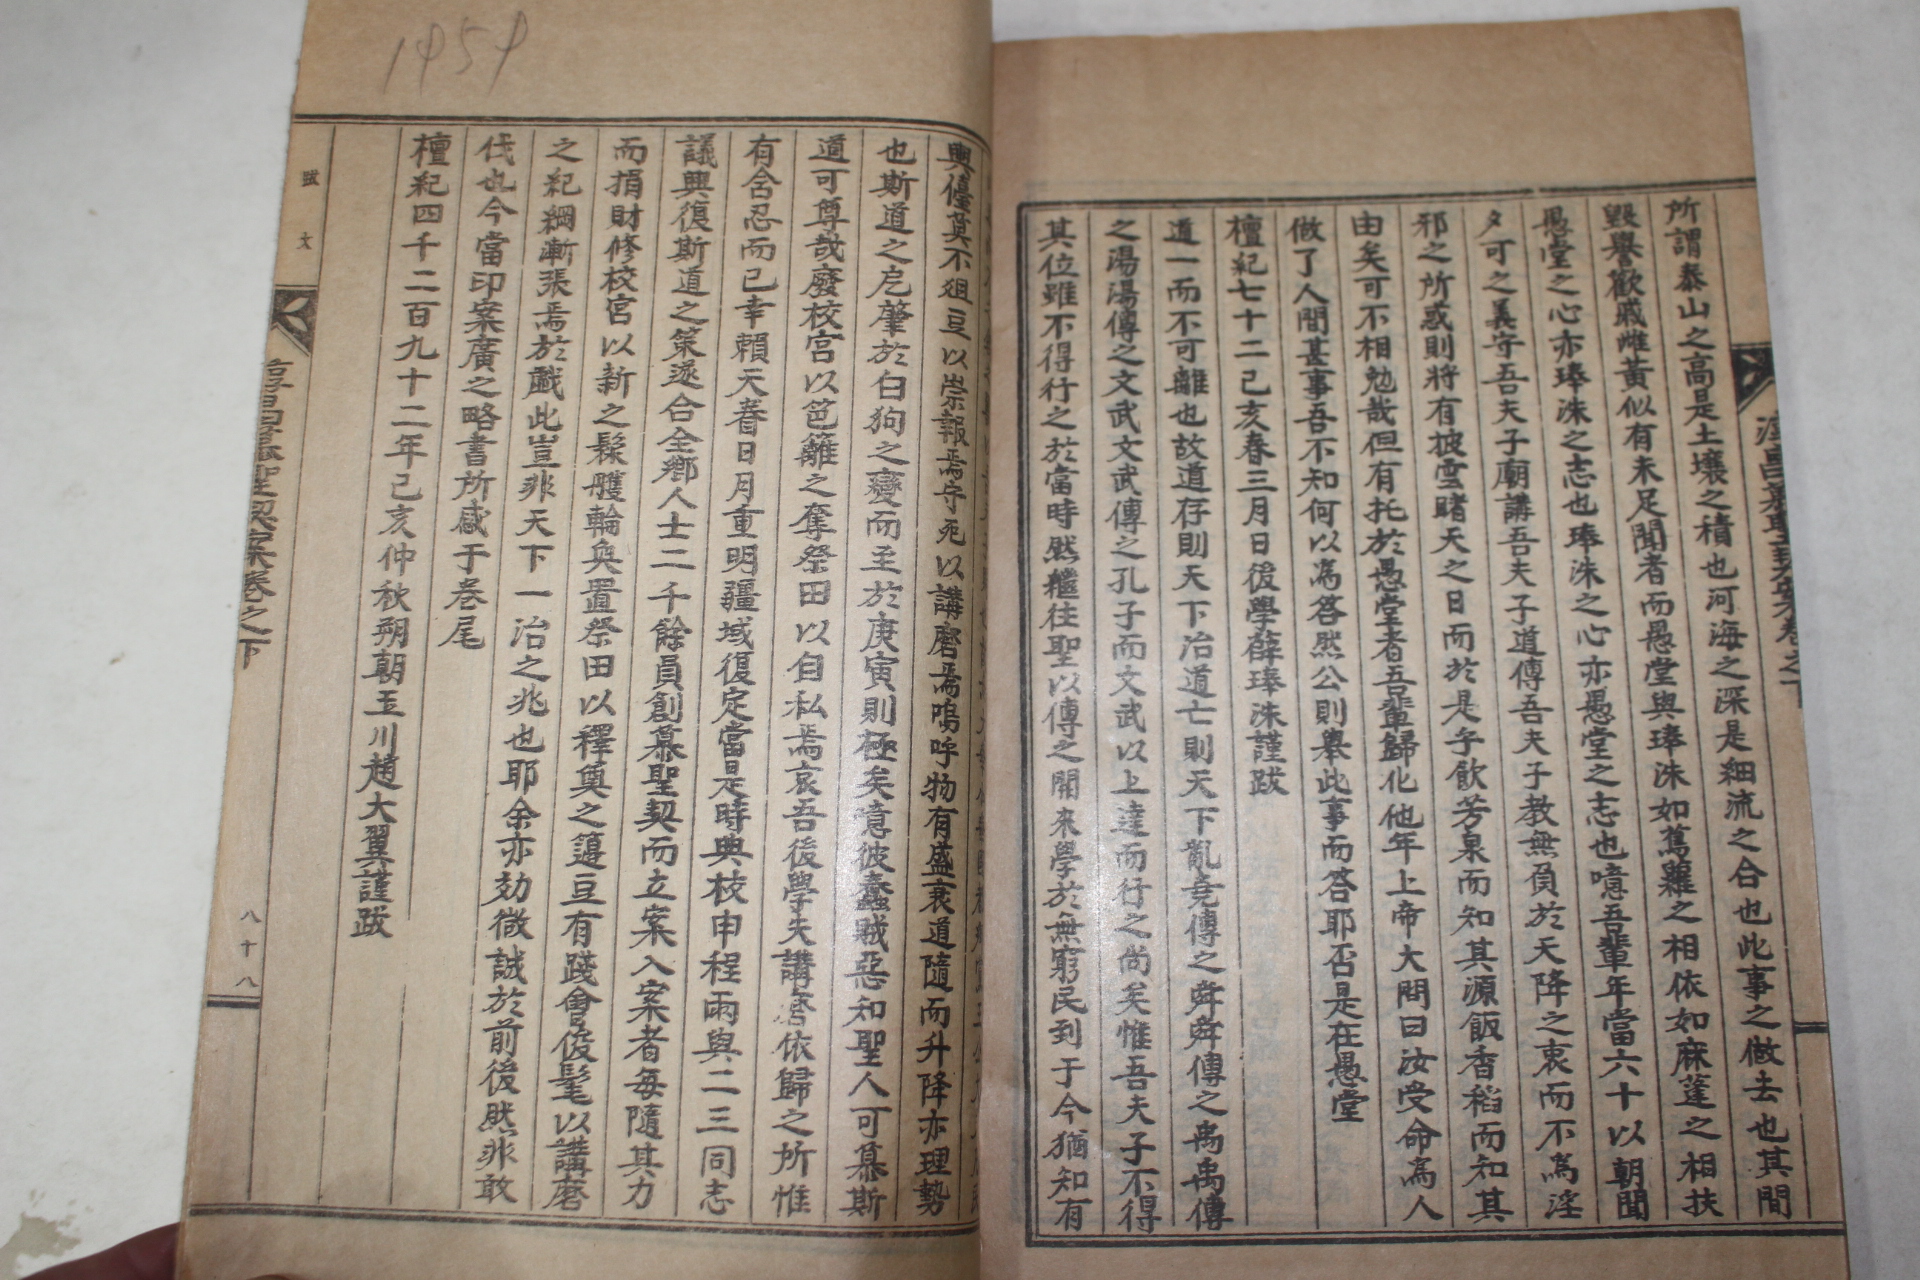 所謂泰山之高是土壤之積也河海之深是細流之合也此事之做去也其間
毀譽歡戚雌黃似有未足聞者而愚堂與琫洙如蔦蘿之相依如麻蓬之相扶
愚堂之心亦琫洙之志也琫洙之心亦愚堂之志也噫吾輩年當六十以朝聞
夕可之義守吾夫子廟講吾夫子道傳吾夫子教無負於天降之衷而不爲淫
邪之所惑則將有披雲睹天之日而於是乎飮芳泉而知其源飯香稻而知其
由矣可不相勉哉但有托於愚堂者吾輩歸化他年上帝大問曰汝受命爲人
做了人間甚事吾不知何以爲答然公則擧此事而答耶否是在愚堂
檀紀七十二己亥春三月日後學薛琫洙謹跋
道一而不可離也故道存則天下治道亡則天下亂堯傳之舜舜傳之禹禹傳
之湯湯傳之文武文武傳之孔子而文武以上達而行之尙矣惟吾夫子不得
其位雖不得行之於當時然繼往聖以傳之開來學於無窮民到于今猶知有
輿儓莫不俎豆以崇報焉守死以講磨焉嗚呼物有盛衰道隨而升降亦理勢
也斯道之厄肇於白狗之變而至於庚寅則極矣憶彼蠢賊惡知聖人可慕斯
道可尊哉廢校宮以笆籬之奪祭田以自私焉哀吾後學失講磨依歸之所惟
有含忍而已幸賴天春日月重明疆域復定當是時典校申程雨與二三同志
議興復斯道之策遂合全鄕人士二千餘員創慕聖契而立案入案者每隨其力
而捐財修校宮以新之髹雘輪奐置祭田以釋奠之籩豆有踐會俊髦以講磨
之紀綱漸張焉於戱此豈非天下一治之兆也耶余亦効微誠於前後然非敢
伐也今當印案廣之略書所感于卷尾
檀紀四千二百九十二年己亥仲秋朔朝玉川趙大翼謹跋
跋文
慕聖契案卷之下
八十八